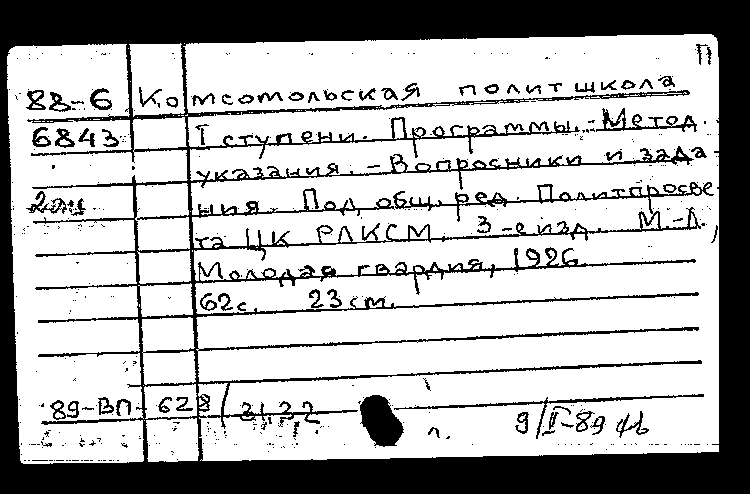 П
88-6 Комсомольская политшкола
6843 I ступени. Программы.-Метод.
указания.-Вопросники и зада-
2 ния. Под общ. ред. Политпросве-
та ЦК РЛКСМ. 3-е изд. М.-Л.,
Молодая гвардия, 1926.
62с. 23см.
89-ВП-628/31,32
л. 9/I-89